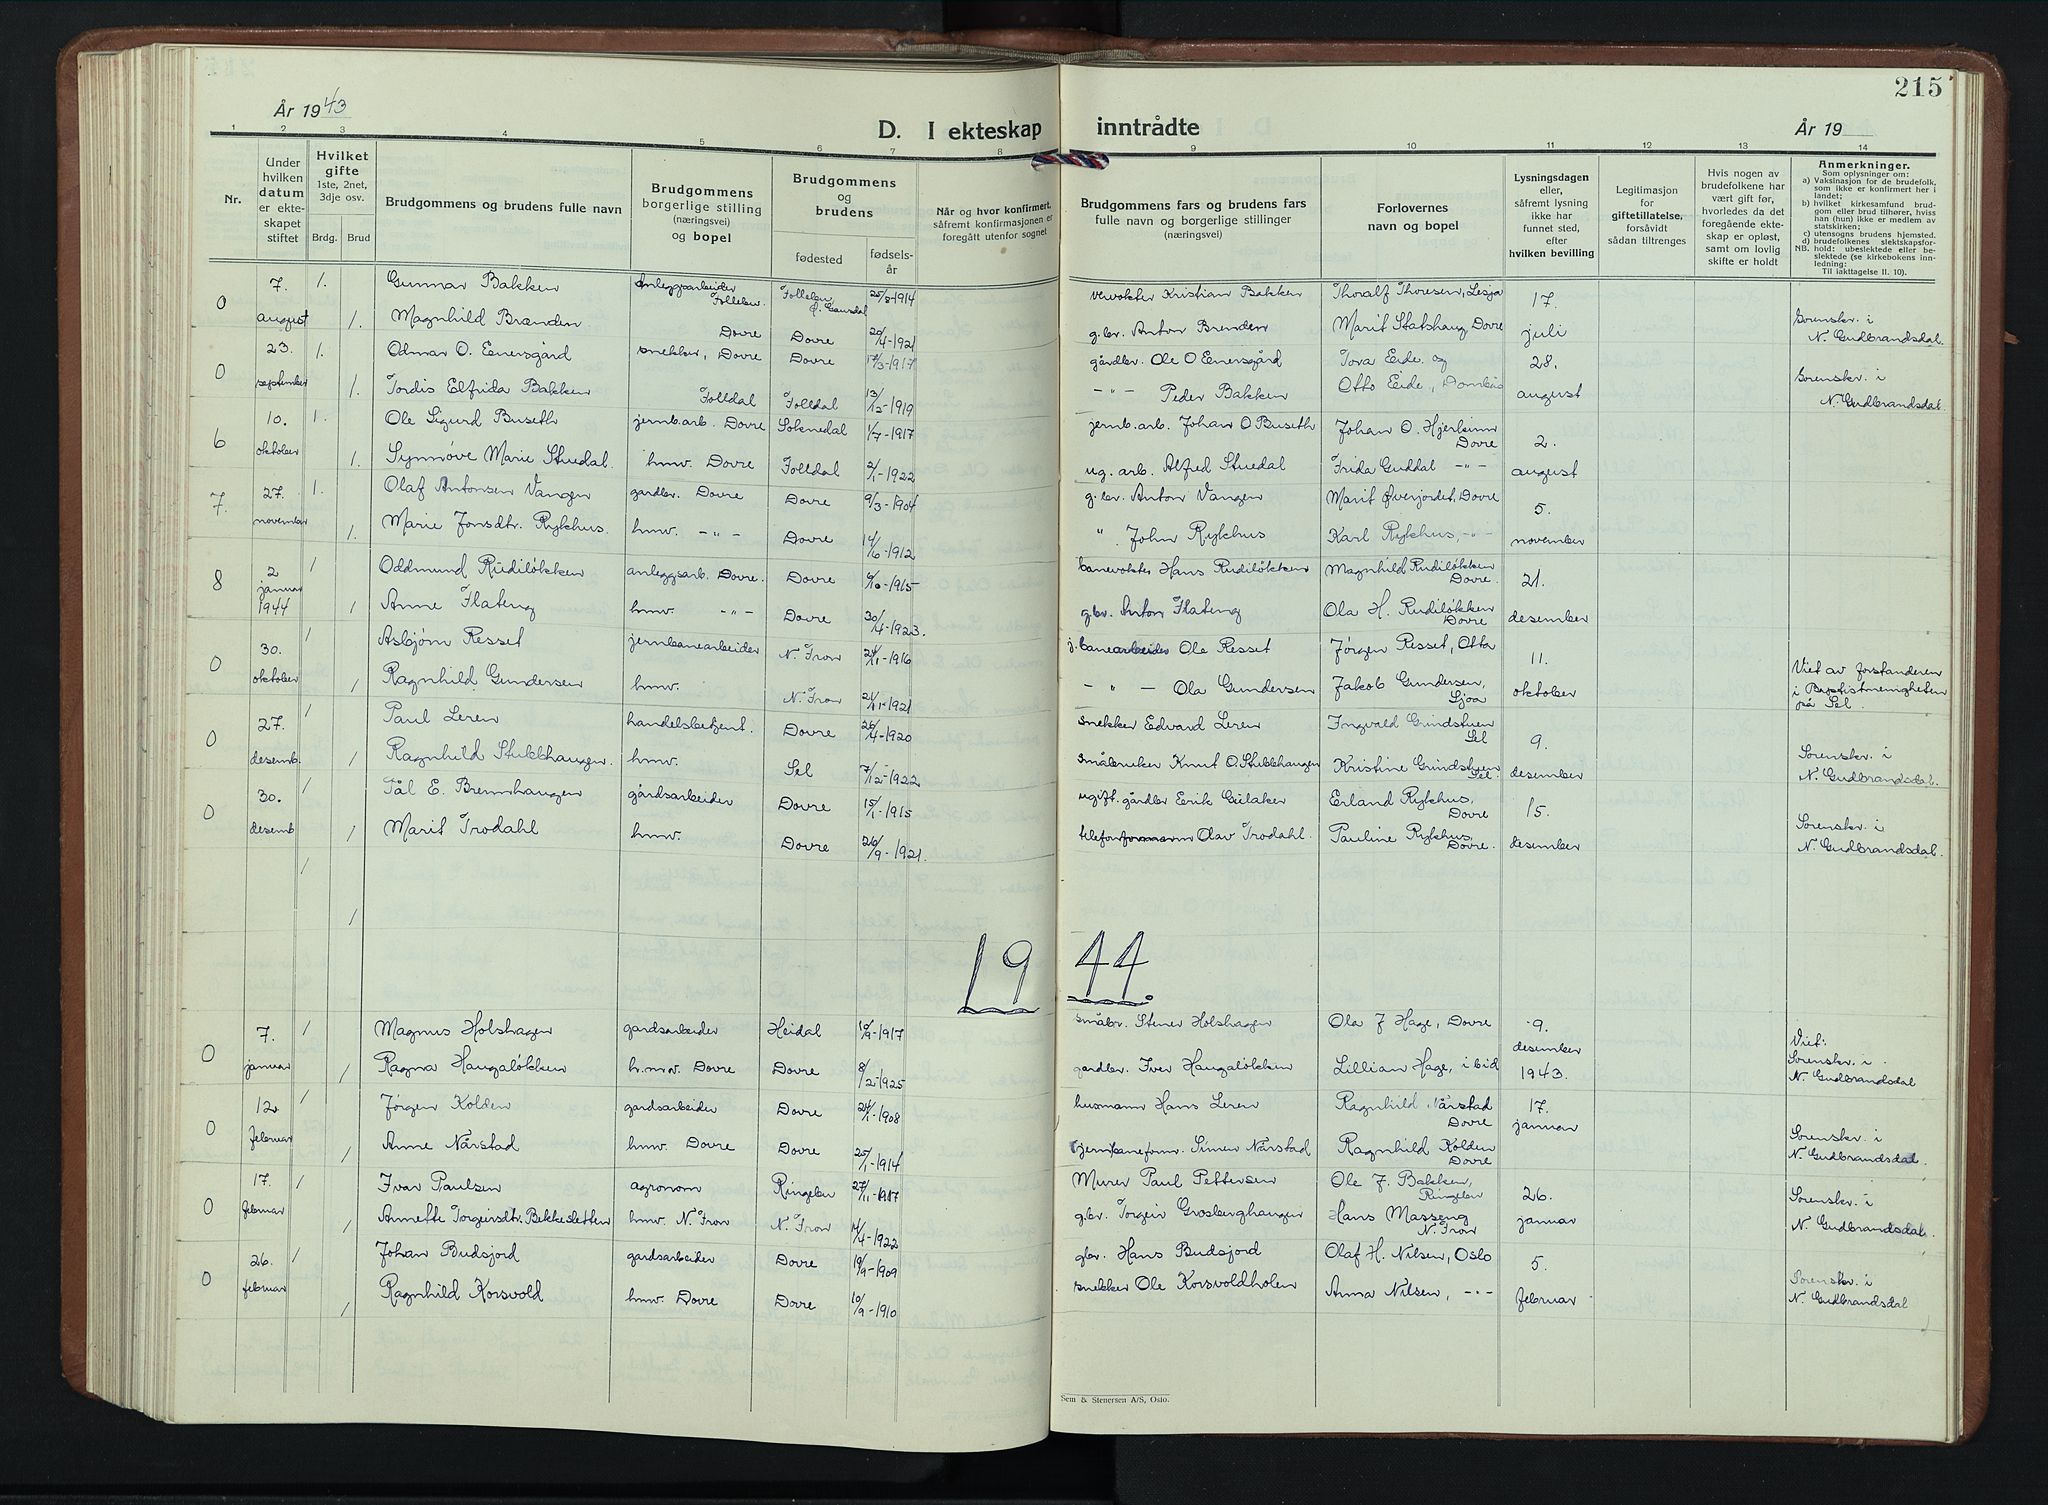 215
År 1943
D. I ekteskap inntrådte
År 19
1 2 3 4 5 6 7 8 9 10 11 12 13 14
Nr.
Under hvilken datum er ekteskapet stiftet
Hvilket gifte 1ste, 2net, 3dje osv.
Brdg. Brud
Brudgommens og brudens fulle navn
Brudgommens borgerlige stilling (næringsvei) og bopel
Brudgommens og brudens
fødested
fødselsår
Når og hvor konfirmert, såfremt konfirmasjonen er foregått utenfor sognet
Brudgommens fars og brudens fars fulle navn og borgerlige stillinger (næringsvei)
Forlovernes navn og bopel
Lysningsdagen eller, såfremt lysning ikke har funnet sted, efter hvilken bevilling
Legitimasjon for giftetillatelse, forsåvidt sådan tiltrenges
Hvis nogen av brudefolkene har vært gift før, hvorledes da det foregående ekteskap er opløst, samt om lovlig skifte er holdt
Anmerkninger.
Som oplysninger om:
a) Vaksinasjon for de brudefolk, som ikke er konfirmert her i landet;
b) hvilket kirkesamfund brudgom eller brud tilhører, hviss han (hun) ikke er medlem av statskirken;
c) utensogns brudens hjemsted.
d) brudefolkenes slektskapsforhold: ubeslektede eller beslektede (se kirkebokens innledning:
NB.
Til iakttagelse II. 10).
0 7. august 1. Gunnar Bakken Anleggsarbeider Follebu Follebu, Ø. Gausdal 25/8-1914 vevokter Kristian Bakken Thoralf Thoresen, Lesja 17.
1. Magnhild Brænden Dovre Dovre 20/4-1921 g.br. Anton Brenden Marit Statshaug, Dovre juli Sorenskr. i N. Gudbrandsdal.
0 23. september 1. Odmar O. Enersgård snekker, Dovre Dovre 17/3-1917 gårdbr. Ole O Enersgård Tora Eide og 28.
1. Tordis Elfrida Bakken Folldal Folldal 13/12-1919 -"- Peder Bakken Otto Eide, Dombås august Sorenskr. i N. Gudbrandsdal.
6 10. oktober 1. Ole Sigurd Buseth jernb.arb. Dovre Soknedal 1/7-1917 jernb.arb. Johan O Buseth Johan O. Hjerkinn Dovre 2.
1. Synnøve Marie Stuedal. hmv. Dovre Folldal 2/1-1922 ug. arb. Alfred Stuedal Frida Guddal -"- august
7. 27. november 1. Olaf Antonsen Vangen gardbr. Dovre Dovre 9/3-1904 g.br. Anton Vangen Marit Øverjordet, Dovre 5.
1. Marie Jonsdtr. Rykhus. hmv. -"- Dovre 14/6-1912 " John Rykhus Karl Rykhus, -"- november
8 2 januar 1944 1 Oddmund Rudiløkken anleggsarb. Dovre. Dovre 6/10-1915 banevokter Hans Rudiløkken Magnhild Rudiløkken Dovre. 21.
1 Anne Flateng hmv. -"- Dovre 30/4-1923. gbr. Anton Flateng Ola H. Rudiløkken Dovre desember
0 30. oktober 1 Asbjørn Resset jernbanearbeider N. Fron 24/11-1916 j.banearbeider Ole Resset Jørgen Resset, Otta 11.
1 Ragnhild Gundersen hmv. N. Fron 21/11-1921 -"- Ola Gundersen Jakob Gundersen, Sjoa oktober Viet av forstanderen i Baptistmenigheten på Sel.
0 27. desemb. 1 Paul Leren handelsbetjent. Dovre 26/4-1920 snekker Edvard Leren Ingvald Grindstuen Sel 9.
1 Ragnhild Stubbhaugen. hmv. Sel 7/12-1922 småbruker Knut O. Stubbhaugen Kristine Grindstuen Sel. desember Sorenskr. i N. Gudbrandsdal.
0 30. desemb 1 Pål E. Brennhaugen gårdsarbeider Dovre 15/1-1915 ugift. gårdbr Erik Gulaker Erland Rykhus, Dovre 15.
1 Marit Trodahl hmv. Dovre 26/9-1921. telefonformann Olav Trodahl. Pauline Rykhus, Dovre. desember Sorenskr. i N. Gudbrandsdal.
1
1
1944.
0 7. januar 1 Magnus Holshagen gardsarbeider Heidal 10/9-1917 småbr. Stener Holshagen Ola J Hage, Dovre 9. desember
1 Ragna Haugaløkken h.m.v. Dovre Dovre 8/2-1925 gardbr. Iver Haugaløkken Lillian Hage, ibid 1943. Viet: Sorenskr. i N. Gudbrandsdal
0 12. februar 1 Jørgen Kolden gardsarbeider Dovre 24/1-1908 husmann Hans Leren Ragnhild Nårstad Dovre 17. januar
1 Anne Nårstad hmv. Dovre Dovre 25/1-1914 jernbaneform. Simen Nårstad Ragnhild Kolden Dovre Sorenskr. i N. Gudbrandsdal.
0 17. februar 1 Ivar Paulsen agronom Ringebu 27/11-1917 Murer Paul Pettersen Ole J. Bakken, Ringebu 26.
1 Annette Torgeirsdtr. Bekkesletten hmv. N. Fron N. Fron 14/4-1922 gbr. Torgeir Grosberghaugen Hans Masseng N. Fron januar Sorenskr. i N. Gudbrandsdal.
0 26. februar 1 Johan Budsjord gardsarbeider Dovre 19/9-1909 gbr. Hans Budsjord Olaf H. Nilsen, Oslo 5.
1 Ragnhild Korsvold hmv. Dovre Dovre 10/9-1910 snekker Ole Korsvoldholen Anna Nilsen, -"- februar Sorenskr. i N. Gudbrandsdal
Sem & Stenersen A/S, Oslo.